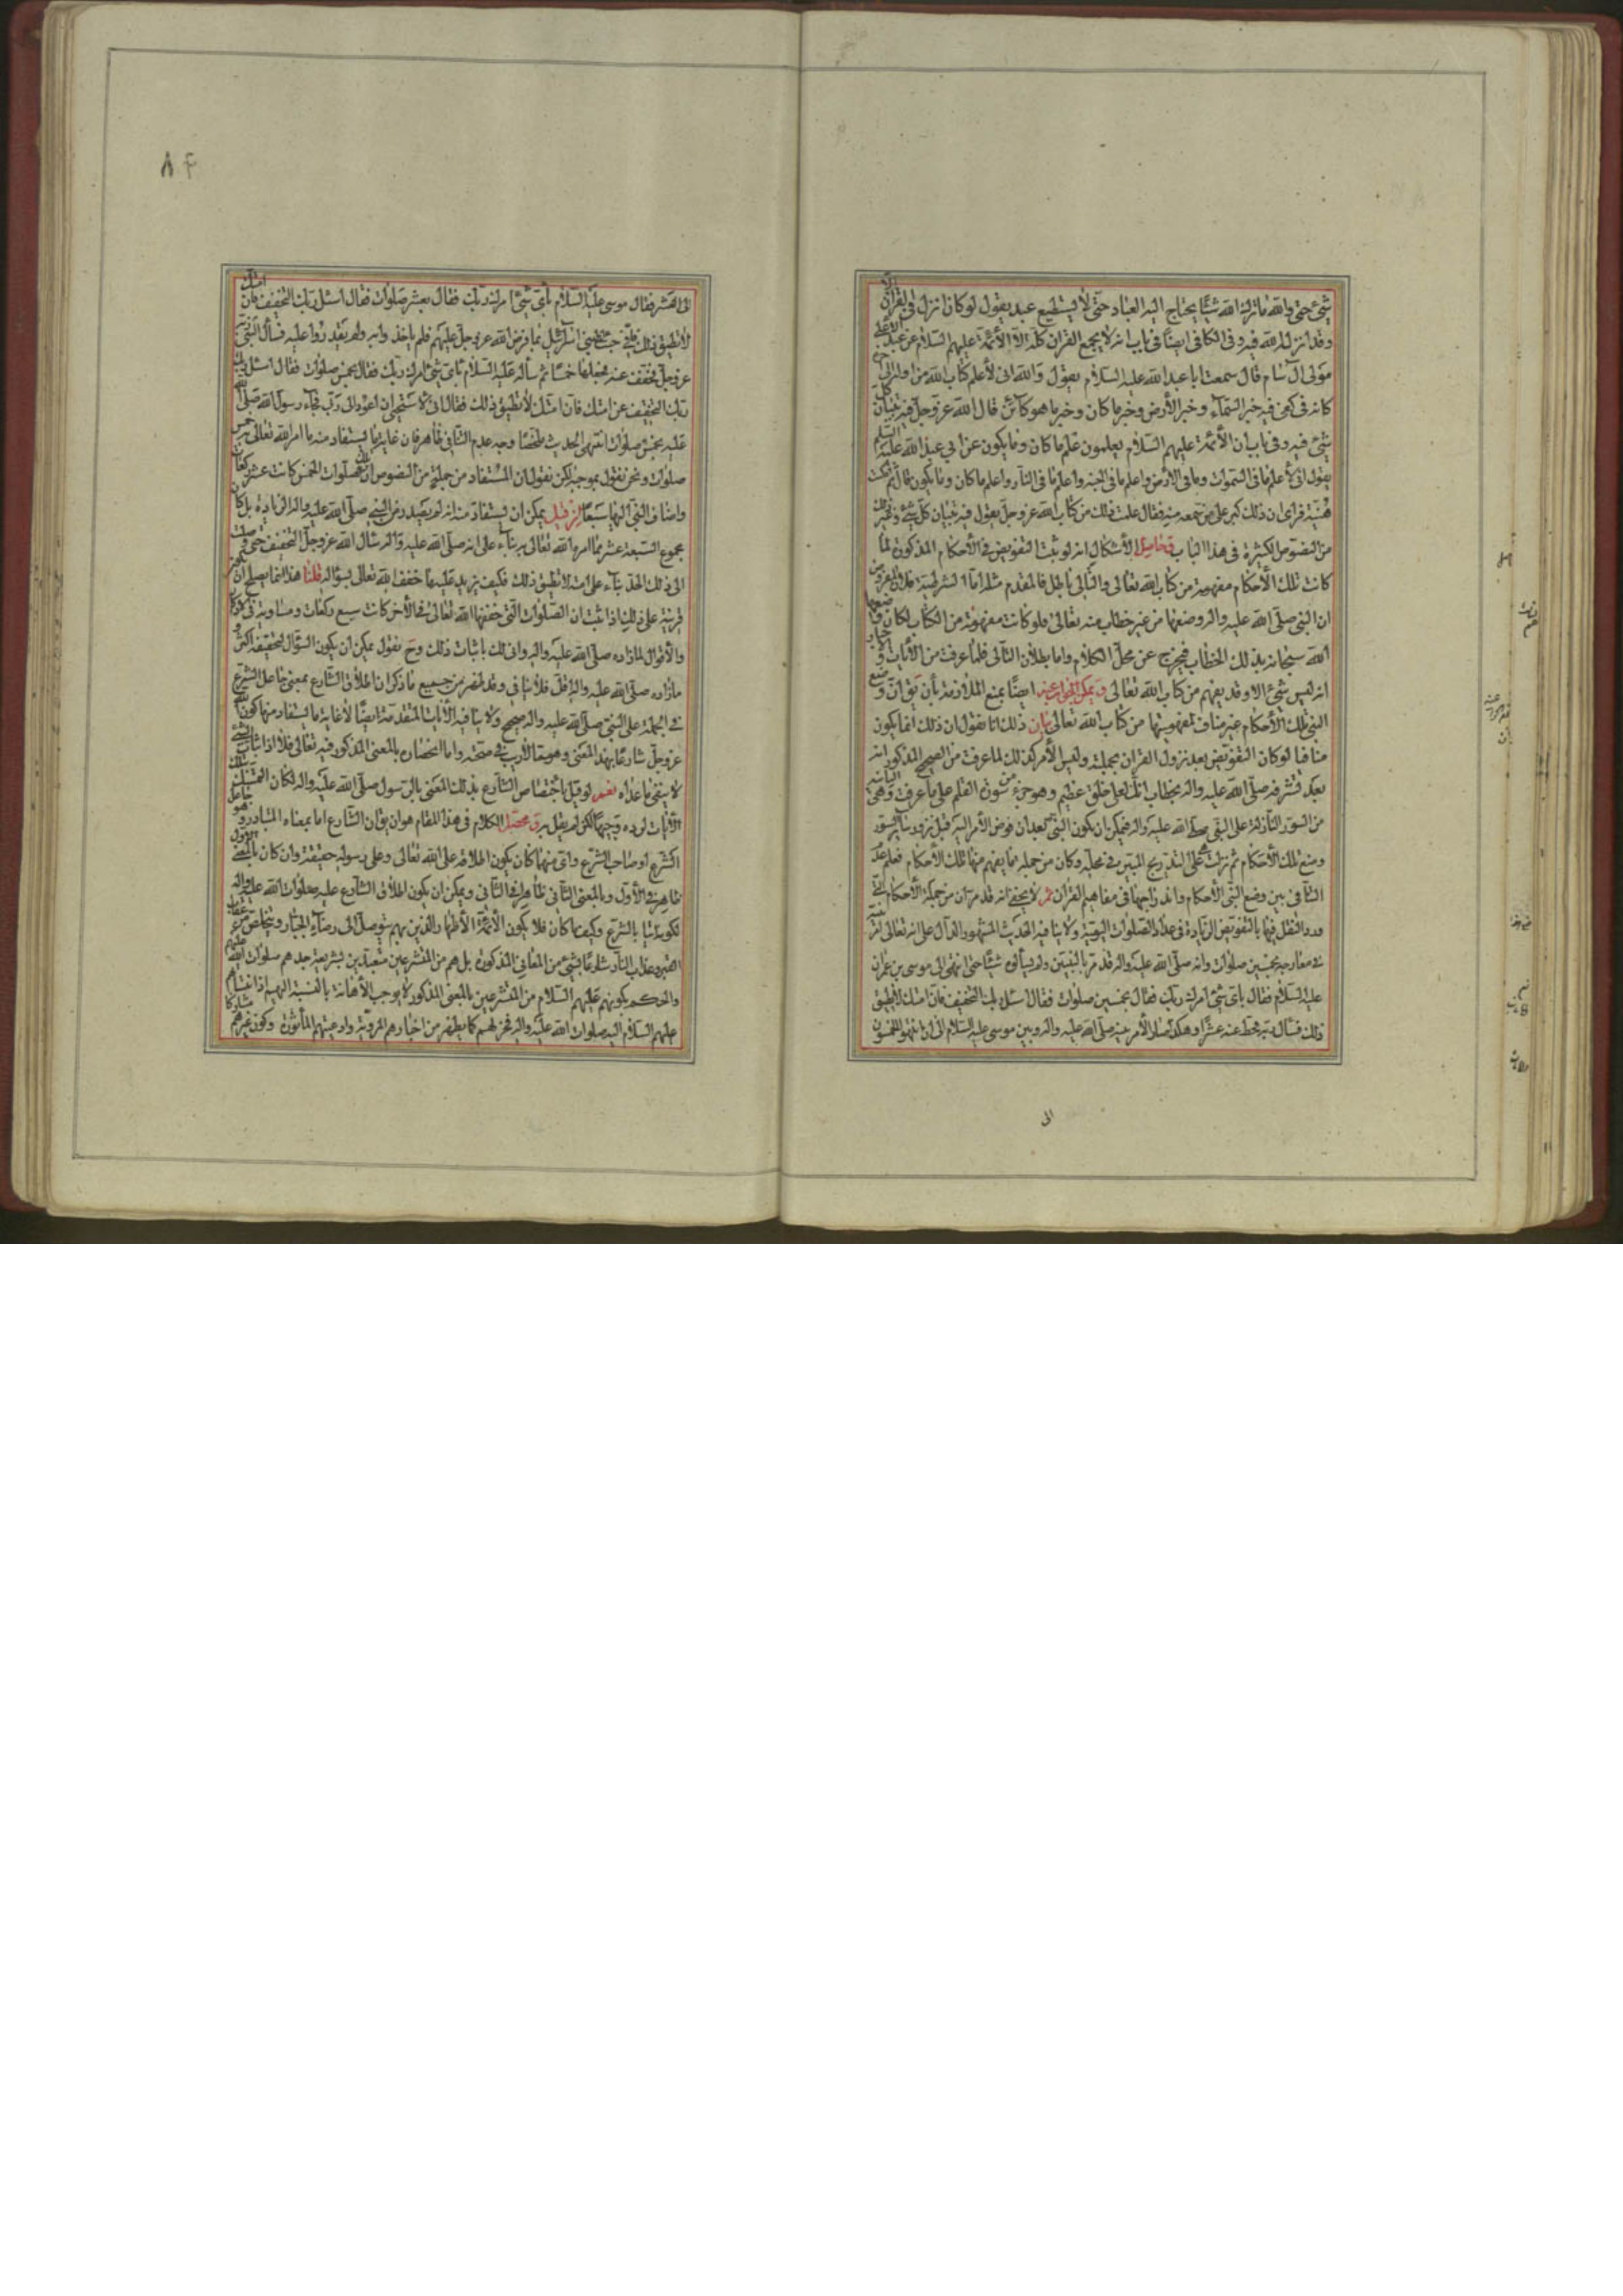 شيء حتى والله ما ترك الله شيئا يحتاج اليه العباد حتى لا يستطيع عبد يقول لو كان انزل في القرآن الا
وقد انزل الله فيه وفي الكافي ايضا في باب انه لا يجمع القرآن كله الا الائمة عليهم السلام عن عبد الاعلى
مولى آل سام قال سمعت ابا عبد الله عليه السلام يقول والله اني لاعلم كتاب الله من اوله الى آخره
كانه في كفي فيه خبر السماء وخبر الارض وخبر ما كان وخبر ما هو كائن قال الله عز وجل فيه تبيان كل
شيء فيه وفي باب ان الائمة عليهم السلام يعلمون علم ما كان وما يكون عن ابي عبد الله عليه السلم
يقول اني لاعلم ما في السموات وما في الارض واعلم ما في الجنة واعلم ما في النار واعلم ما كان وما يكون قال ثم مكث
هنيئة فرأى ان ذلك كبر على من سمعه منه فقال علمت ذلك من كتاب الله عز وجل يقول فيه تبيان كل شيء وغير ذلك
من النصوص الكثيرة في هذا الباب وحاصل الاشكال انه لو ثبت التفويض في الاحكام المذكورة لما
كانت تلك الاحكام مفهومة من كتاب الله تعالى والتالي باطل فالمقدم مثله اما الشرطية فلان المفروض
ان النبي صلى الله عليه واله وضعها من غير خطاب منه تعالى فلو كانت مفهومة من الكتاب لكان
الله سبحانه بذلك الخطاب فيخرج عن محل الكلام واما بطلان التالي فلما عرفت من الآيات و
انه ليس شيء الا وقد يفهم من كتاب الله تعالى ويمكن الجواب عنه ايضا بمنع الملازمة بأن يق ان وضع
النبي تلك الاحكام غير مناف لمفهوميتها من كتاب الله تعالى بيان ذلك انا نقول ان ذلك انما يكون
منافيا لو كان التفويض بعد نزول القرآن بجملته وليس الامر كذلك لما عرفت من الصحيح المذكور انه
بعد تشرفه صلى الله عليه واله بخطاب انك لعلى خلق عظيم وهو جزء من سورة القلم على ما عرفت وهي
من السور النازلة على النبي صلى الله عليه واله فيمكن ان يكون النبي بعد ان فوض الامر اليه قبل نزول سائر السور
وضع تلك الاحكام ثم نزلت على التدريج المبين في محله وكان من جملة ما يفهم منها تلك الاحكام فعلم عدم
التنافي بين وضع النبي الاحكام واندراجها في مفاهيم القرآن ثم لا يخفى انه قد مر ان من جملة الاحكام التي
ورد النقل فيها بالتفويض الزيادة في عدد الصلوات اليومية ولا ينافيه الحديث المشهور الدال على انه تعالى امر نبيه
في معارجه بخمسين صلوات وانه صلى الله عليه واله قد مر بالنبيين ولم يسألوه شيئا حتى انتهى الى موسى بن عمران
عليه السلام فقال بأي شيء امرك ربك فقال بخمسين صلوات فقال اسئل ربك التخفيف فان امتك لا تطيق
ذلك فسأل ربه فحط عنه عشرا وهكذا الامر بينه صلى الله عليه واله وبين موسى عليه السلام الى ان انتهى
الى
٨٤
الى العشر فقال موسى عليه السلام بأي شيء امرك ربك فقال بعشر صلوات فقال اسئل ربك التخفيف فان امتك
لا تطيق ذلك فاني جئت الى بني اسرائيل بما فرض الله عز وجل عليهم فلم يأخذوا به ولم يقدروا عليه فسأل النبي ربه
عز وجل فخفف عنه فجعلها خمسا ثم سأله عليه السلام بأي شيء امرك ربك فقال بخمس صلوات فقال اسئل
ربك التخفيف عن امتك فان امتك لا تطيق ذلك فقال اني لاستحيي ان اعود الى ربي فجاء رسول الله صلى الله
عليه بخمس صلوات انتهى الحديث ملخصا وجه عدم التنافي ظاهر فان غاية ما يستفاد منه ما امر الله تعالى خمس
صلوات ونحن نقول بموجبه لكن نقول ان المستفاد من جملة من النصوص ان تلك الصلوات الخمس كانت عشر ركعات
واضاف النبي اليها سبعا ان قيل يمكن ان يستفاد منه انه لم يصدر من النبي صلى الله عليه واله الزيادة بل كان
مجموع السبعة عشر مما امره الله تعالى به بناء على انه صلى الله عليه واله سئال الله عز وجل التخفيف حتى وصلت
الى ذلك الحد بناء على امته لا تطيق ذلك فكيف يزيد عليه ما خفف الله تعالى بسؤاله قلنا هذا انما يصلح ان يكون
قرينة على ذلك اذا ثبت ان الصلوات التي خففها الله تعالى كانت سبع ركعات ومساوية في
والاقوال لما زاده صلى الله عليه واله واني لك باثبات ذلك وح نقول يمكن ان يكون السؤال لتخفيفه اكثر
مما زاده صلى الله عليه واله فلا تنافي وقد ظهر من جميع ما ذكر ان اطلاق الشارع بمعنى جاعل الشرع
في الجملة على النبي صلى الله عليه واله صحيح ولا ينافيه الآيات المتقدمة ايضا لان غاية ما يستفاد منها كون الله
عز وجل شارعا بهذا المعنى وهو مما لا ريب في صحته واما انحصاره بالمعنى المذكور فيه تعالى فلا اذ اثبات الشيء
لا ينفي ما عداه نعم لو قيل باختصاص الشارع بذلك المعنى بالرسول صلى الله عليه واله لكان التمسك بتلك
الآيات لرده وجيها لكن لم يقل به ومحصل الكلام في هذا المقام هو ان يق ان الشارع اما بمعناه المتبادر وهو جاعل
الشرع او صاحب الشرع واي منهما كان يكون اطلاقه على الله تعالى وعلى رسوله حقيقة وان كان بالمعنى الاول
ظاهر في الاول وبالمعنى الثاني ظاهر في الثاني ويمكن ان يكون اطلاق الشارع عليه صلوات الله عليه واله
لكونه اتيا بالشرع وكيف ما كان فلا يكون الائمة الاطهار والذين بهم يتوصل الى رضاء الجبار ويتخلص من عقاب
القبر وعذاب النار شارعا بشيء من المعاني المذكورة بل هم من المتشرعين متعبدين بشريعة جدهم صلوات الله عليهم
والحكم بكونهم عليهم السلام من المتشرعين بالمعنى المذكور لا يوجب الاهانة بالنسبة اليهم اذ انتسابهم
عليهم السلام اليه صلوات الله عليه واله فخر لهم كما يظهر من اخبارهم المروية وادعيتهم المأثورة وكون غيرهم مشاركا